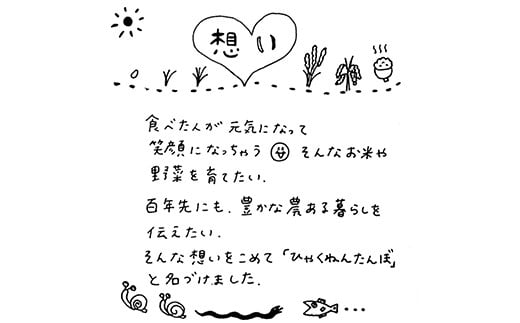 想い
食べた人が元気になって
笑顔になっちゃう そんなお米や
野菜を育てたい.
百年先にも、豊かな農ある暮らしを
伝えたい.
そんな想いをこめて「ひゃくねんたんぼ」
と名づけました.